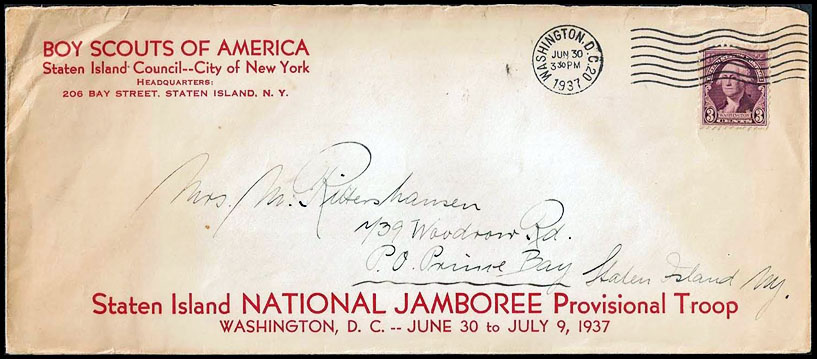 BOY SCOUTS OF AMERICA
Staten Island Council--City of New York
HEADQUARTERS:
206 BAY STREET, STATEN ISLAND, N. Y.
WASHINGTON, D.C. 20
JUN 30
3 30 PM
1937
3 WASHINGTON 3
CENTS
Mrs. M. Rittershausen
739 Woodrow Rd.
P.O. Prince Bay Staten Island Ny.
Staten Island NATIONAL JAMBOREE Provisional Troop
WASHINGTON, D. C. -- JUNE 30 to JULY 9, 1937